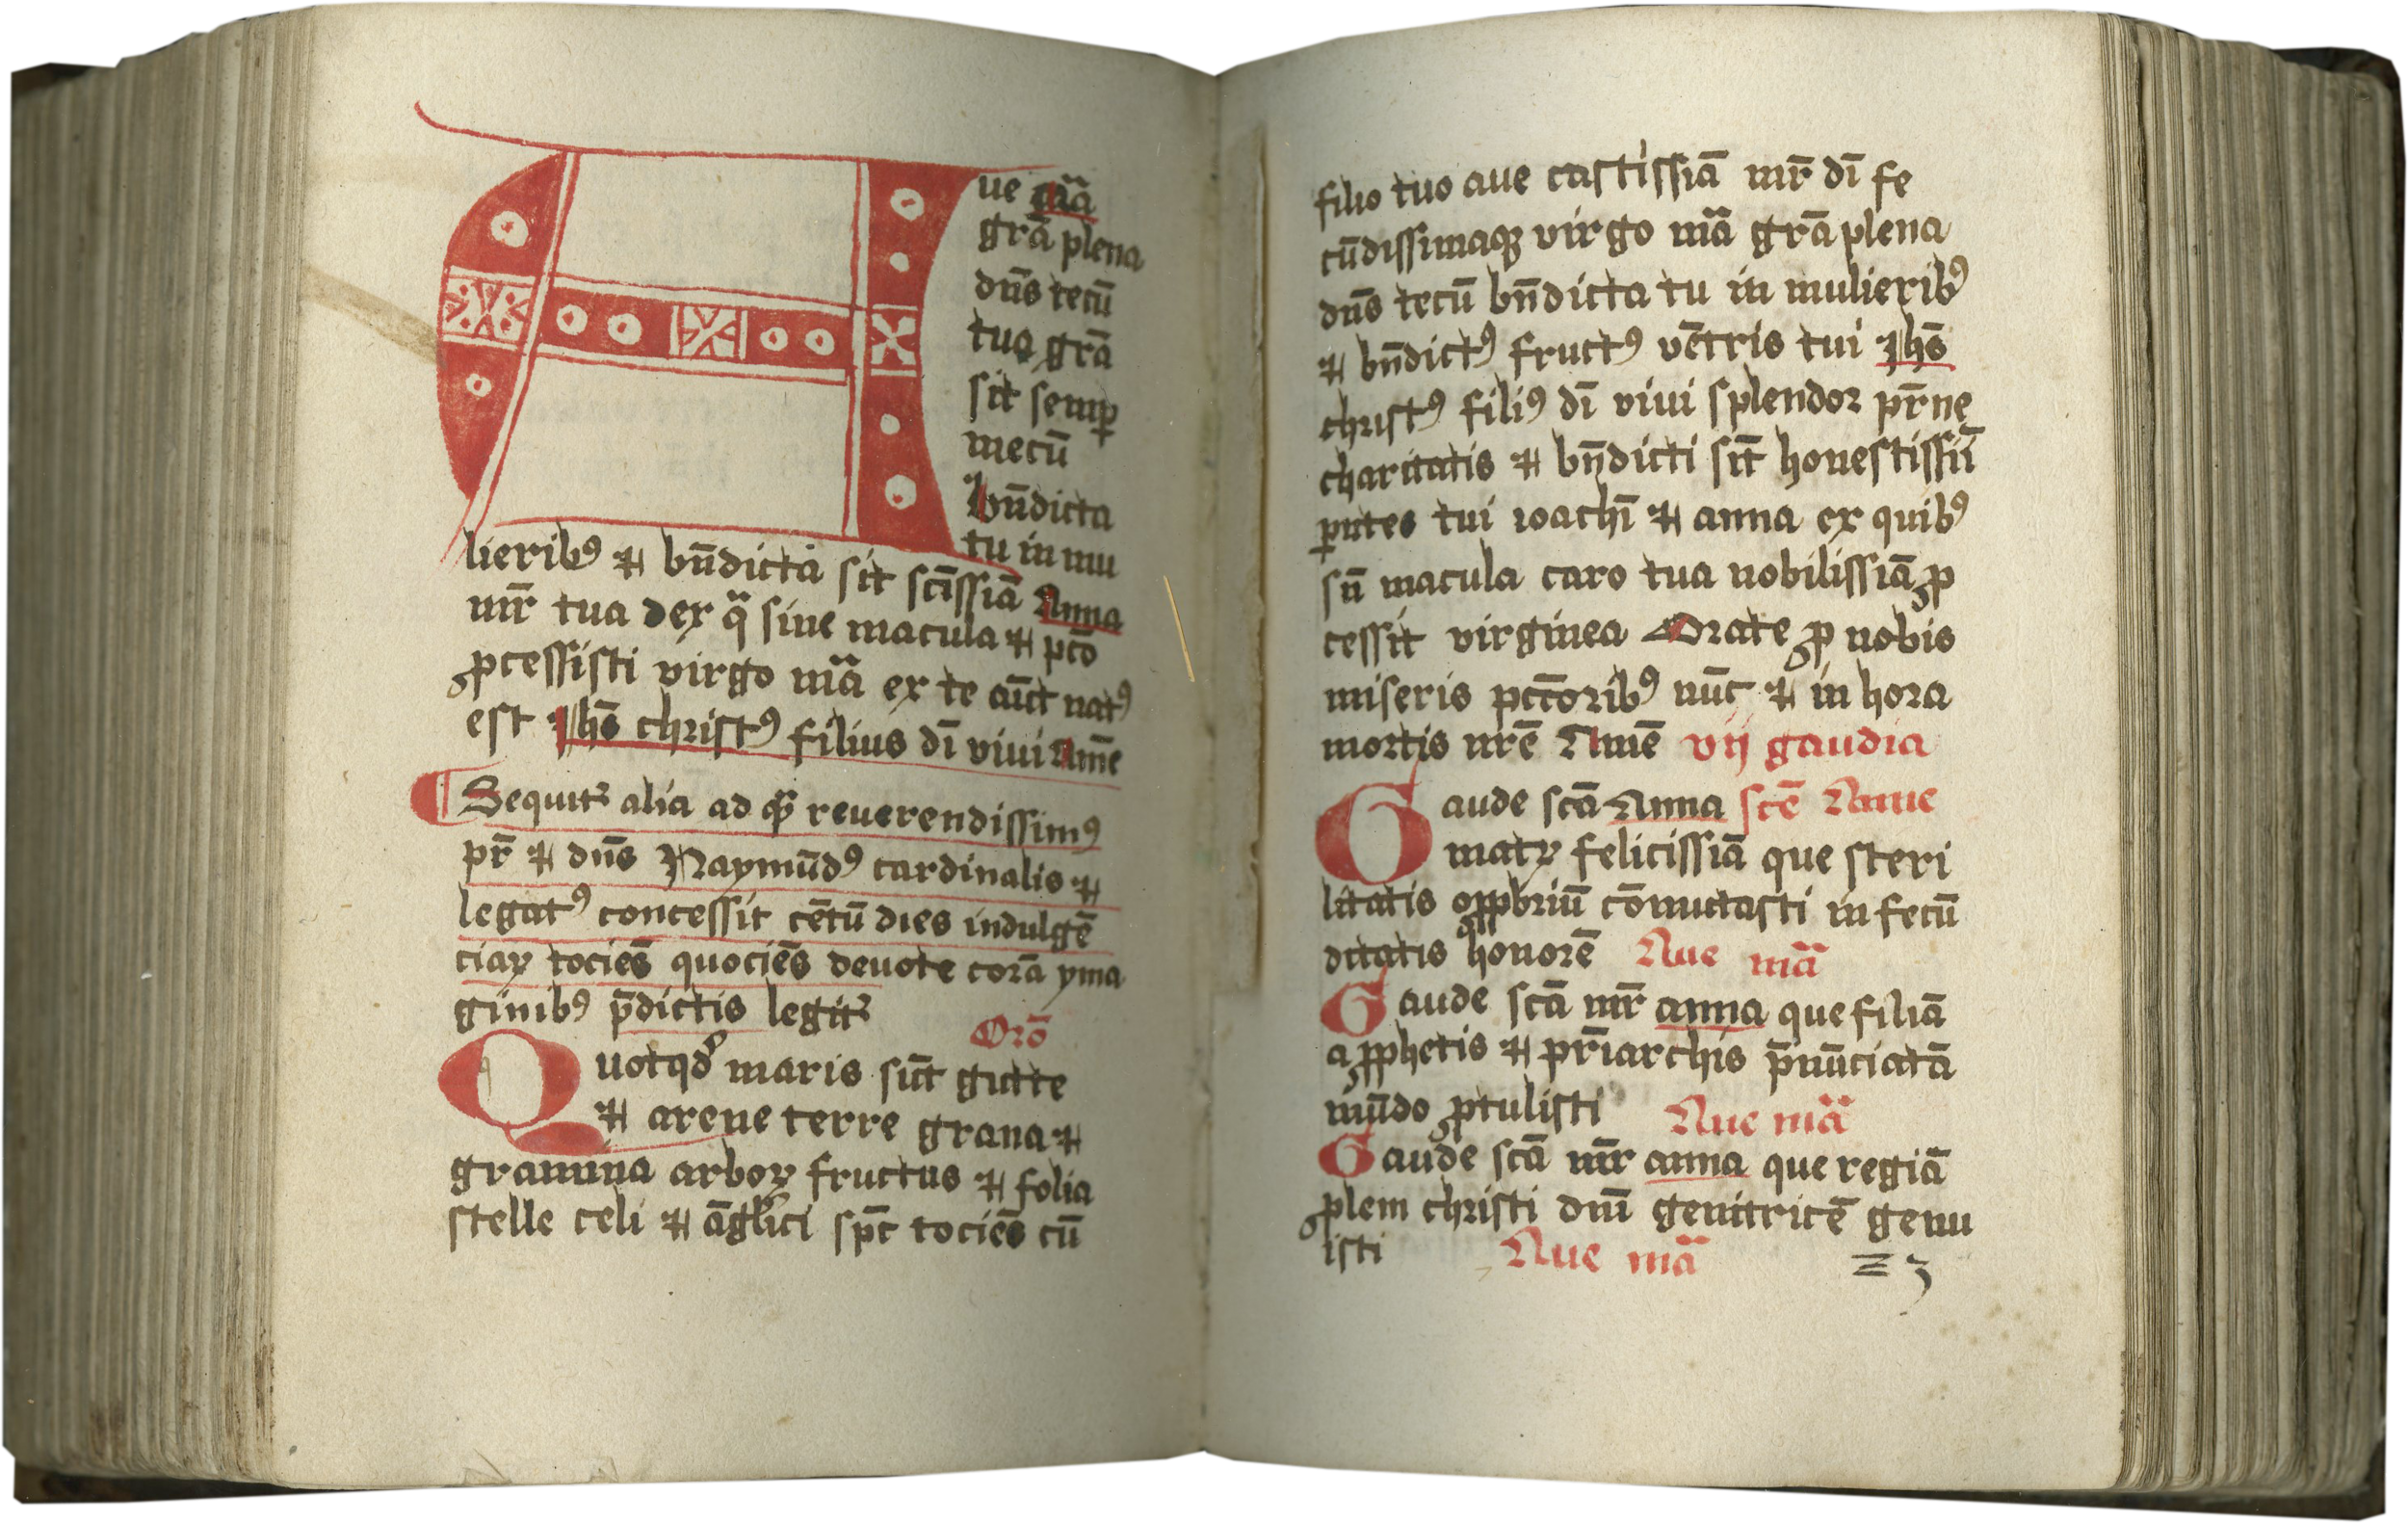 Aue mͣā
grā plena
dn̄s tecū
tua grā
sit semꝑ
mecū
bn̄dicta
tu in mu
lieribꝰ ⁊ bn̄dicta sit scīssiā Anna
mr̄ tua de ex qͣ sine macula ⁊ pctō
ꝓcessisti virgo mͣā ex te aūt natꝰ
est Jhs̄ christꝰ filius dī viui Amē
Sequit᷑ alia ad quā reuerendissimꝰ
pr̄ ⁊ dn̄s Raymūdꝰ cardinalis ⁊
legatꝰ concessit cētū dies indulgē
ciaꝝ tociēs quociēs deuote corā yma
ginibꝰ p̄dictis legit᷑
Orō
Quotqd maris sūt gutte
⁊ arene terre grana ⁊
gramina arboꝝ fructus ⁊ folia
stelle celi ⁊ āglici spc̄ tociēs cū
filio tuo aue castissiā mr̄ dī fe
cūdissimaqꝫ virgo mͣā grā plena
dn̄s tecū bn̄dicta tu in mulieribꝰ
⁊ bn̄dictꝰ fructꝰ vētris tui Jhs̄
christꝰ filiꝰ dī viui splendor pr̄ne
charitatis ⁊ bn̄dicti sīt honestissīi
ꝑntes tui ioachī ⁊ anna ex quibꝰ
sn̄ macula caro tua nobilissiā ꝓ
cessit virginea Orate ꝓ nobis
miseris pctōribꝰ nūc ⁊ in hora
mortis nrē Amē vij gaudia
Gaude scā Anna scē Anne
matꝝ felicissiā que steri
litatis opꝓbriū cōmutasti in fecū
ditatis honorē Aue mͣā
Gaude scā mr̄ anna que filiā
a ꝓphetis ⁊ pr̄iarchis p̄nūciatā
mūdo ꝓtulisti Aue mͣā
Gaude scā mr̄ anna que regiā
ꝓlem christi dnī genitricē genu
isti Aue mͣā